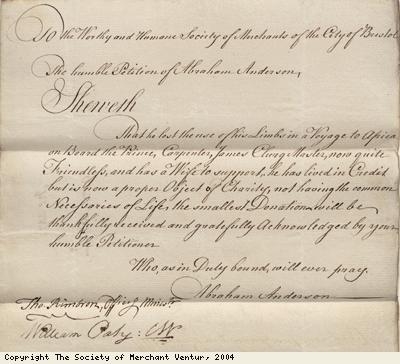 To the Worthy and Humane Society of Merchants of the City of Bristol
The humble Petition of Abraham Anderson,
Sheweth
That he lost the use of his Limbs in a Voyage to Africa
on Board the Prince, Carpenter, James Master, now quite
Friendless, and has a Wife to support, he has lived in Credit
but is now a proper Object of Charity, not having the common
Necessaries of Life; the smallest Donation will be
thankfully received and gratefully Acknowledged by your
humble Petitioner
Who, as in Duty bound, will ever pray.
Abraham Anderson
Tho.
William Paty: CW
Copyright The Society of Merchant Ventur, 2004